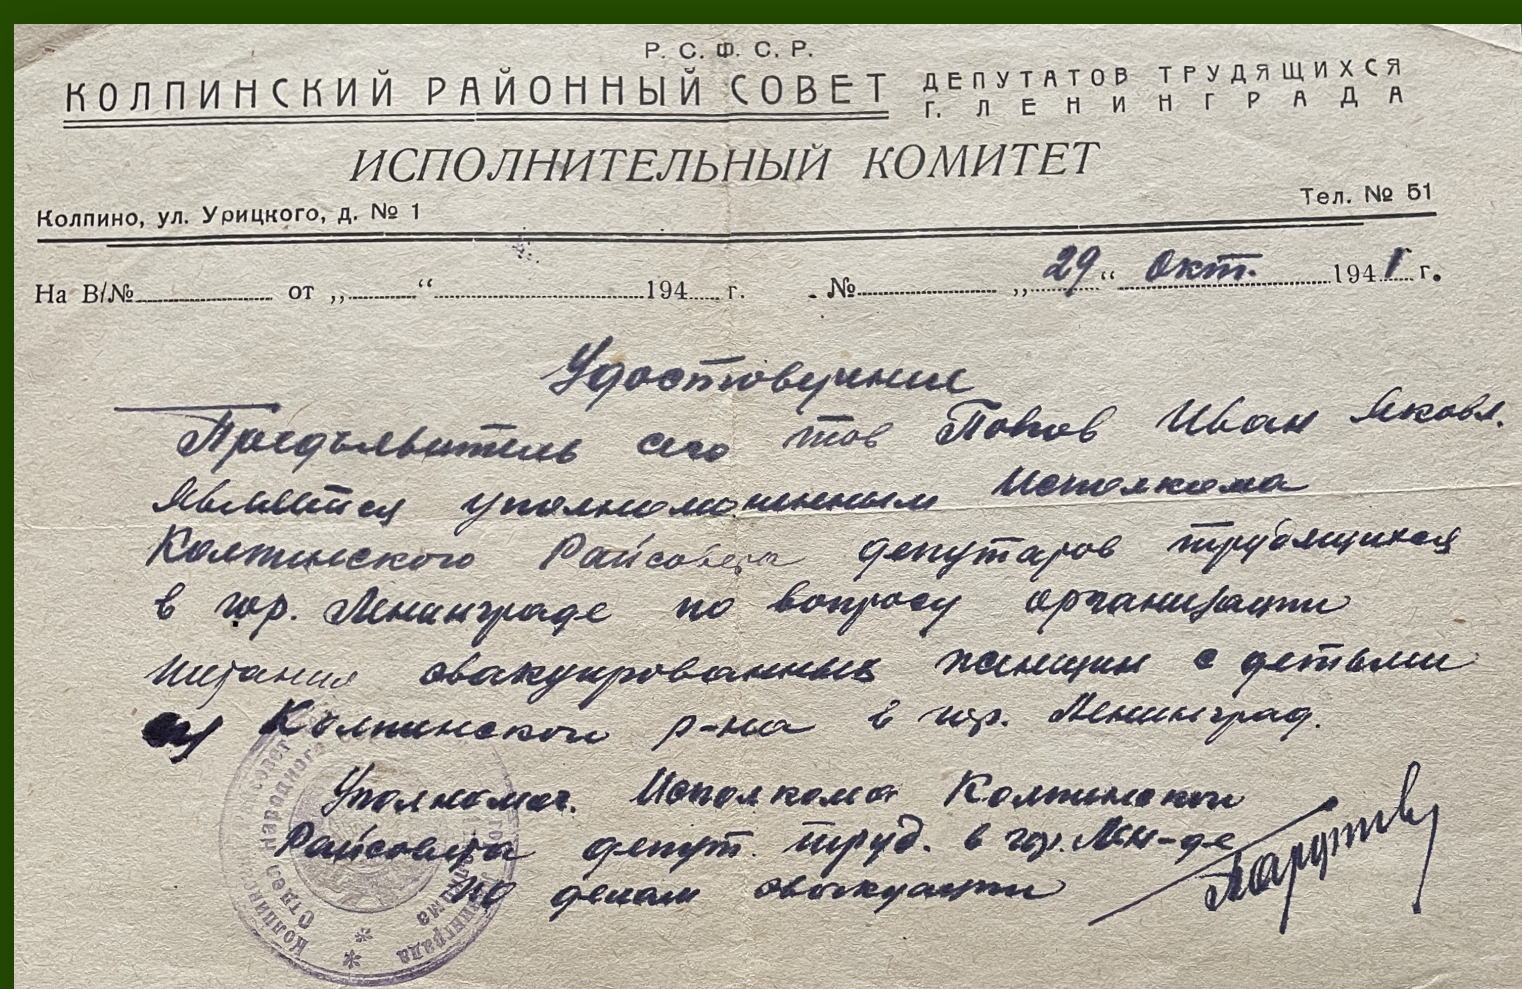 Р. С. Ф. С. Р.
КОЛПИНСКИЙ РАЙОННЫЙ СОВЕТ ДЕПУТАТОВ ТРУДЯЩИХСЯ
Г. ЛЕНИНГРАДА
ИСПОЛНИТЕЛЬНЫЙ КОМИТЕТ
Колпино, ул. Урицкого, д. № 1 Тел. № 51
На В/№ от „ “ 194 г. № „29“ Окт. 1941 г.
Удостоверение
Предъявитель сего тов Попов Иван Яковл.
является уполномоченным Исполкома
Колпинского Райсовета депутатов трудящихся
в гор. Ленинграде по вопросу организации
питания эвакуированных женщин с детьми
из Колпинского р-на в гор. Ленинград.
Уполномоч. Исполкома Колпинского
Райсовета депут. труд. в гор. Лен-де
по делам эвакуации
Отдел народного